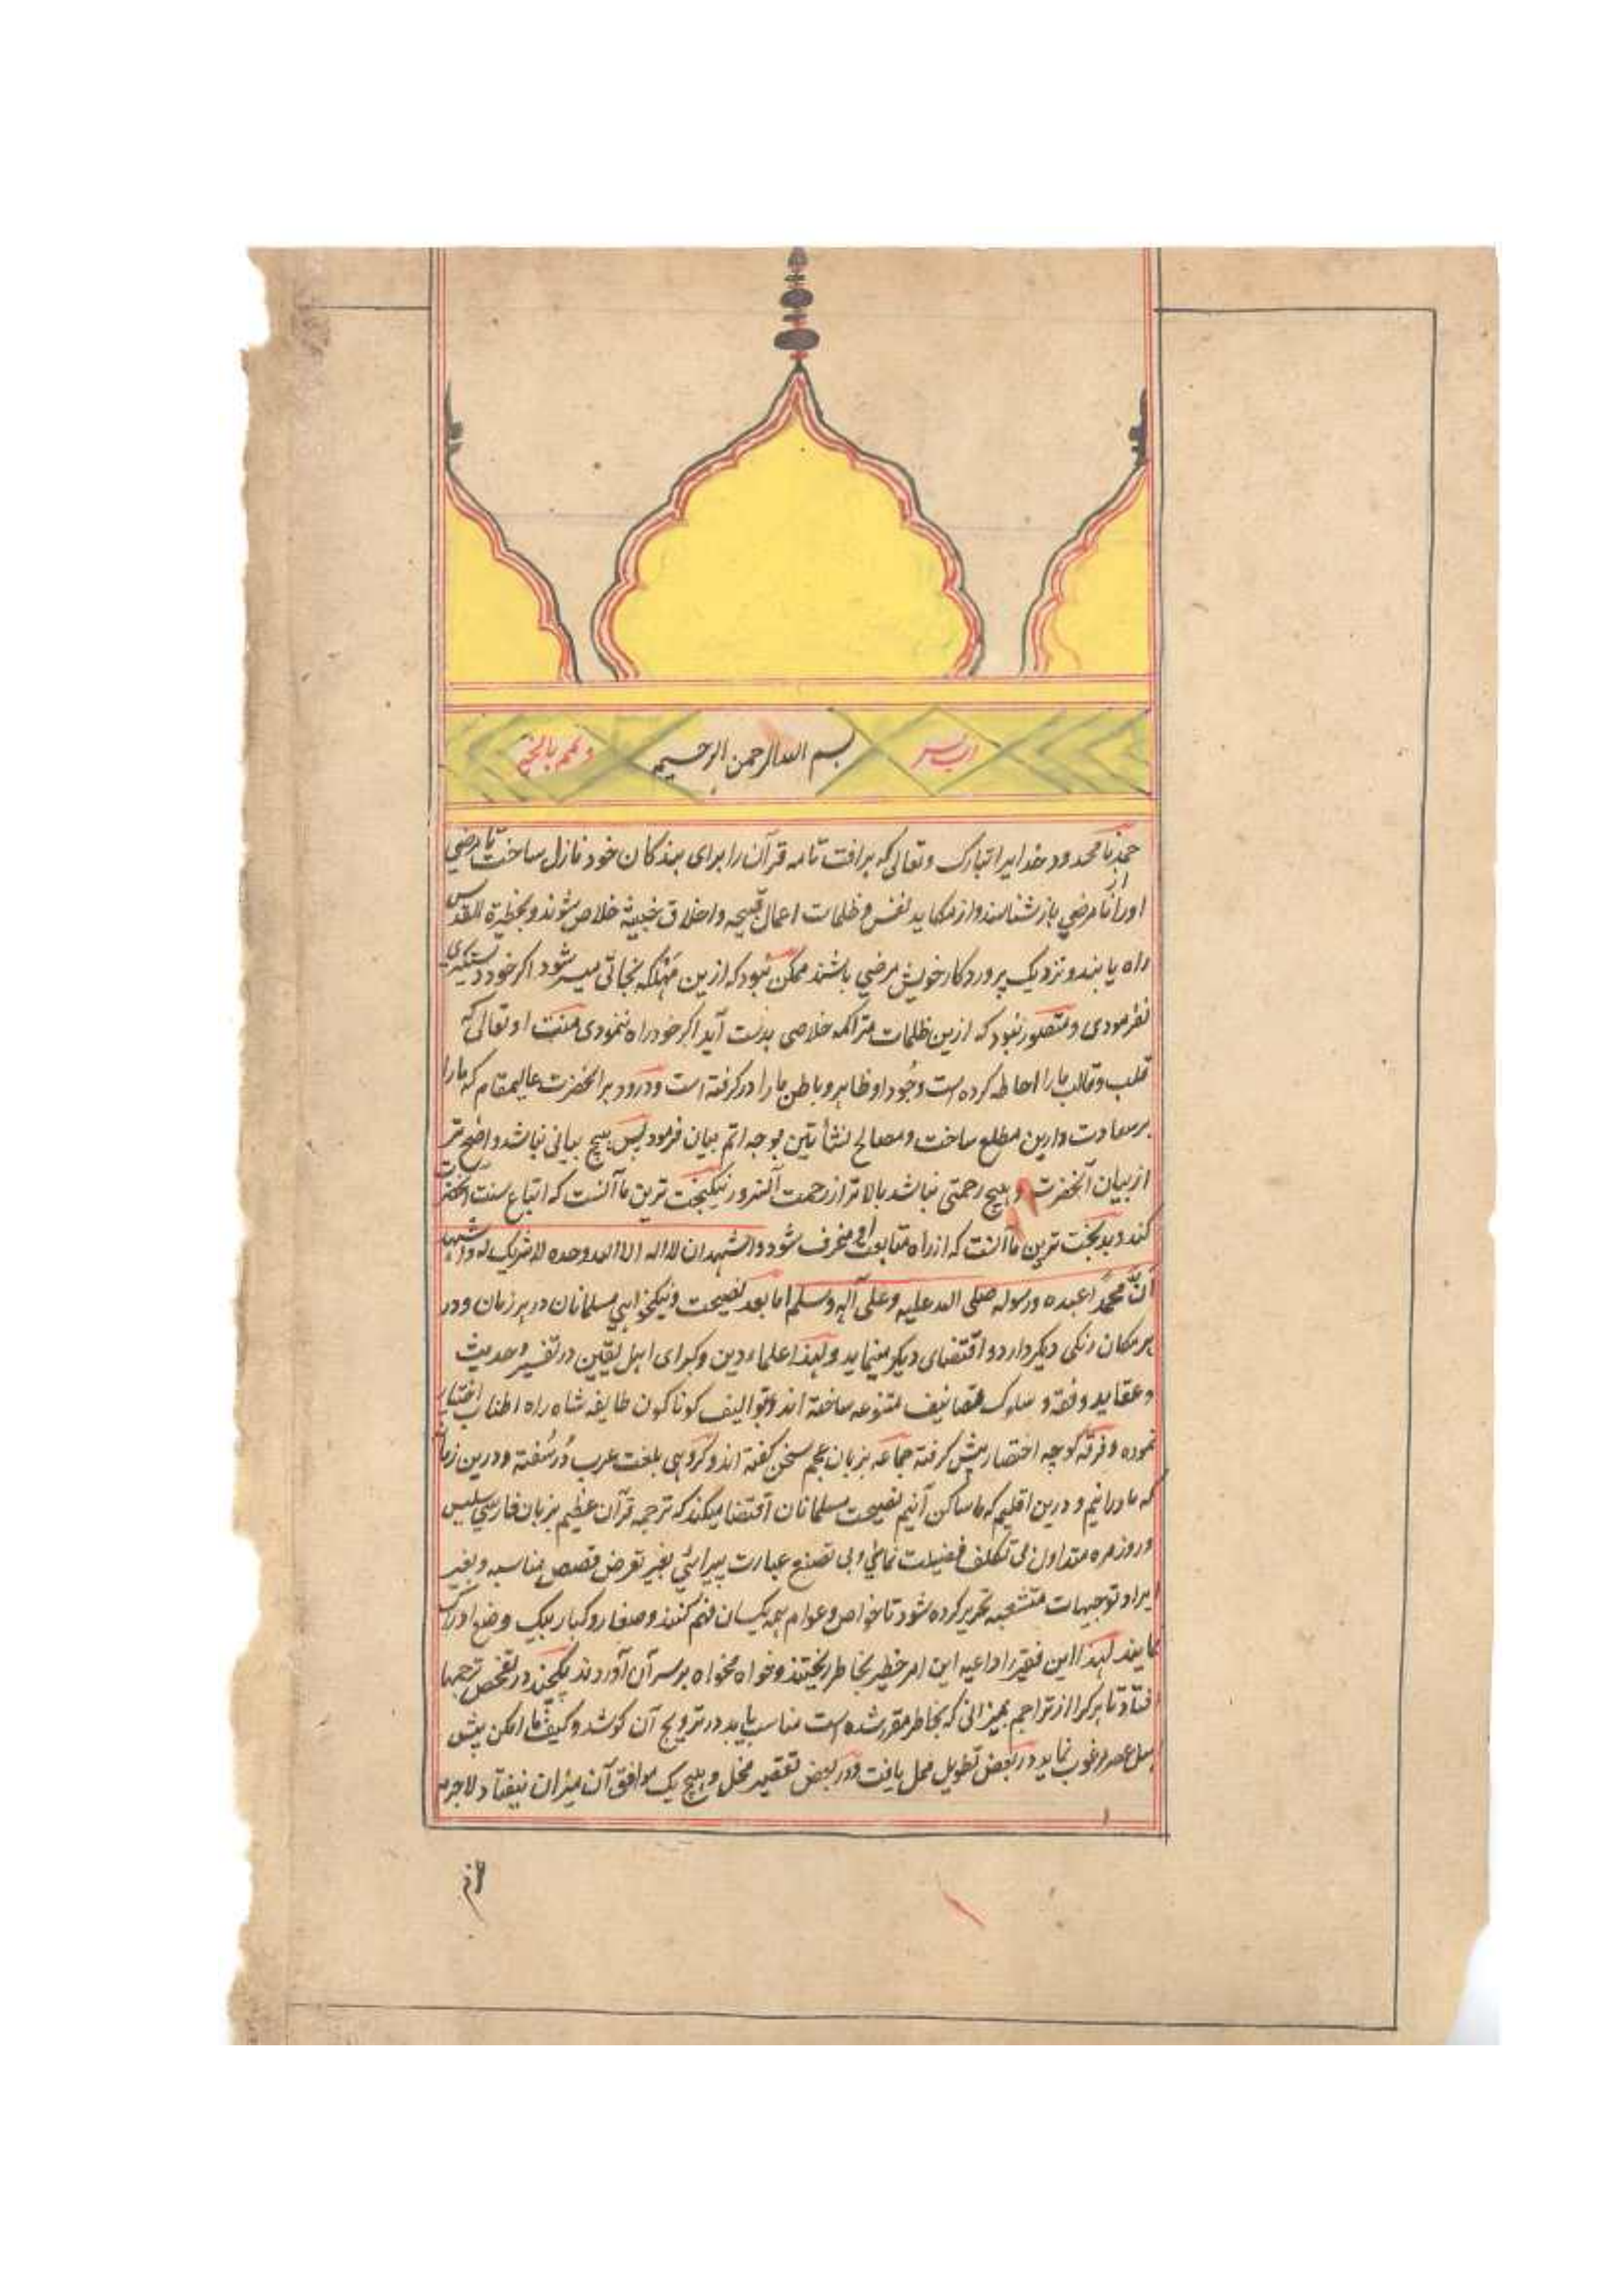 رب یسر بسم الله الرحمن الرحیم وتمم بالخیر
حمد نا محدود خدایرا تبارک وتعالی که برافت تامه قرآن را برای بندکان خود نازل ساخت تا مرضی
اورا از نا مرضی باز شناسند و از مکاید نفس و ظلمات اعمال قبیحه و اخلاق خبیثه خلاص شوند و بحظیرة القدس
راه یابند و نزدیک پروردکار خویش مرضی باشند ممکن نبود که ازین مهلکه نجاتی میسر شود اکر خود دستکیری
نفرمودی و متصور نبود که ازین ظلمات متراکمه خلاصی بدست آید اکر خود راه ننمودی منت او تعالی که
قلب و قالب ما را احاطه کرده است وجود او ظاهر و باطن ما را در کرفته است و درود بر آنحضرت عالیمقام که ما را
بر سعادت دارین مطلع ساخت و مصالح نشأتین بوجه اتم بیان فرمود پس هیچ بیانی نباشد واضح تر
از بیان آنحضرت و هیچ رحمتی نباشد بالاتر از رحمت آنسرور نیکبخت ترین ما آنست که اتباع سنت آنحضرت
کند و بدبخت ترین ما آنست که از راه متابعت او منحرف شود و اشهد ان لا اله الا الله وحده لا شریک له و اشهد
أنّ محمدًا عبده ورسوله صلی الله علیه وعلی آله وسلم اما بعد نصیحت و نیکخواهی مسلمانان در هر زمان و در
هر مکان رنکی دیکر دارد و اقتضای دیکر مینماید و لهذا علماء دین و کبرای اهل یقین در تفسیر و حدیث
و عقاید و فقه و سلوک تصانیف متنوعه ساخته اند و توالیف کوناکون طایفه شاه راه اطناب اختیار
نموده و فرقه کوچه اختصار پیش کرفته جماعه بزبان عجم سخن کفته اند و کروهی بلغت عرب دُر سُفته و درین زمانه
که ما درانیم و درین اقلیم که ما ساکن آنیم نصیحت مسلمانان اقتضا میکند که ترجمه قرآن عظیم بزبان فارسی سلیس
و روزمره متداول بی تکلف فضیلت نمائی و بی تصنع عبارت پیرائی بغیر تعرض قصص مناسبه و بغیر
ایراد توجیهات منشعبه تحریر کرده شود تا خواص و عوام همه یکسان فهم کنند و صغار و کبار بیک وضع ادراک
نمایند لهذا این فقیر را داعیه این امر خطیر بخاطر ریختند و خواه مخواه بر سر آن آوردند یکچند در تفحص ترجمها
افتاد تا هر کرا از تراجم بمیزانی که بخاطر مقرر شده است مناسب یابد در ترویج آن کوشد و کیف ما امکن پیش
اهل عصر مرغوب نماید در بعض تطویل ممل یافت و در بعض تقصیر مخل و هیچ یک موافق آن میزان نیفتاد لاجرم